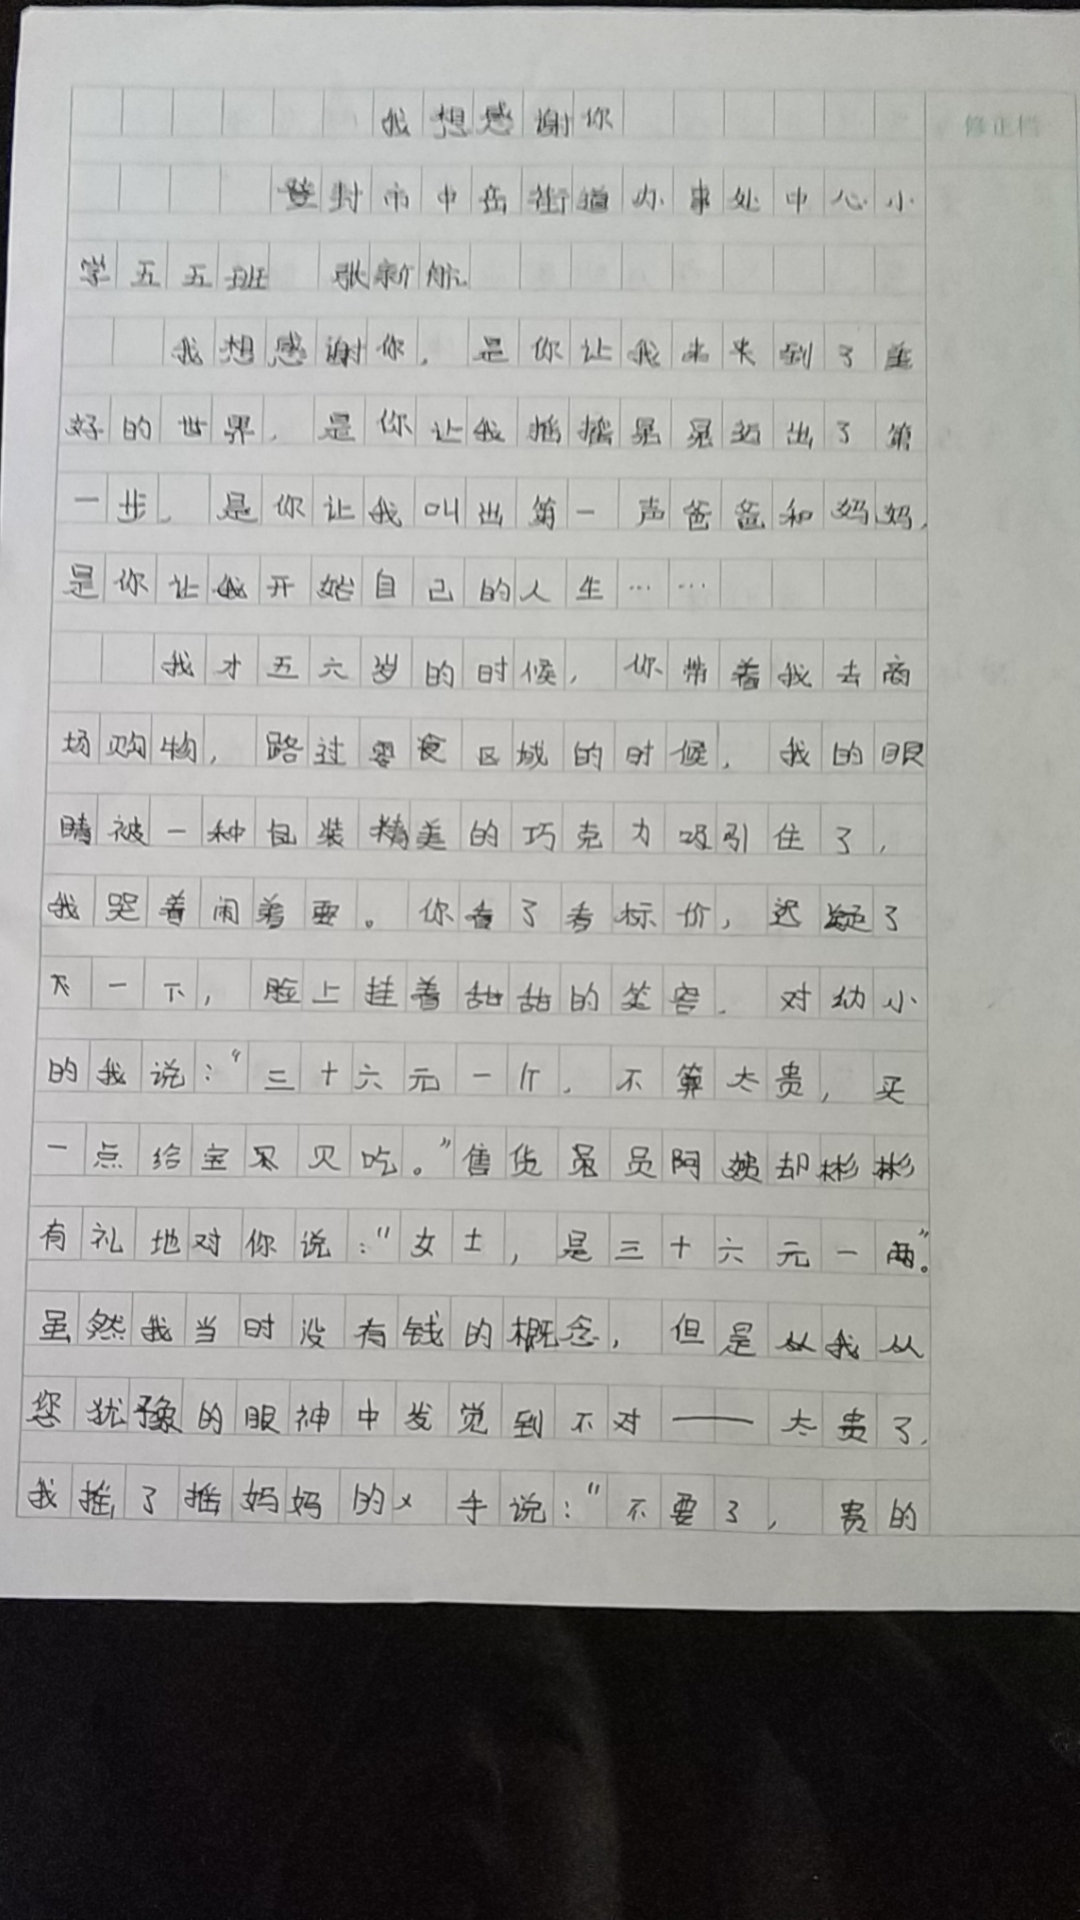 我想感谢你
修正栏
登封市中岳街道办事处中心小
学五五班 张新航
我想感谢你，是你让我来来到了美
好的世界，是你让我摇摇晃晃迈出了第
一步，是你让我叫出第一声爸爸和妈妈，
是你让我开始自己的人生……
我才五六岁的时候，你带着我去商
场购物，路过零食区域的时候，我的眼
睛被一种包装精美的巧克力吸引住了，
我哭着闹着要。你看了看标价，迟疑了
下一下，脸上挂着甜甜的笑容，对幼小
的我说：“三十六元一斤，不算太贵，买
一点给宝贝吃。”售货员阿姨却彬彬
有礼地对你说：“女士，是三十六元一两”。
虽然我当时没有钱的概念，但是从我从
您犹豫的眼神中发觉到不对——太贵了，
我摇了摇妈妈的手说：“不要了，贵的